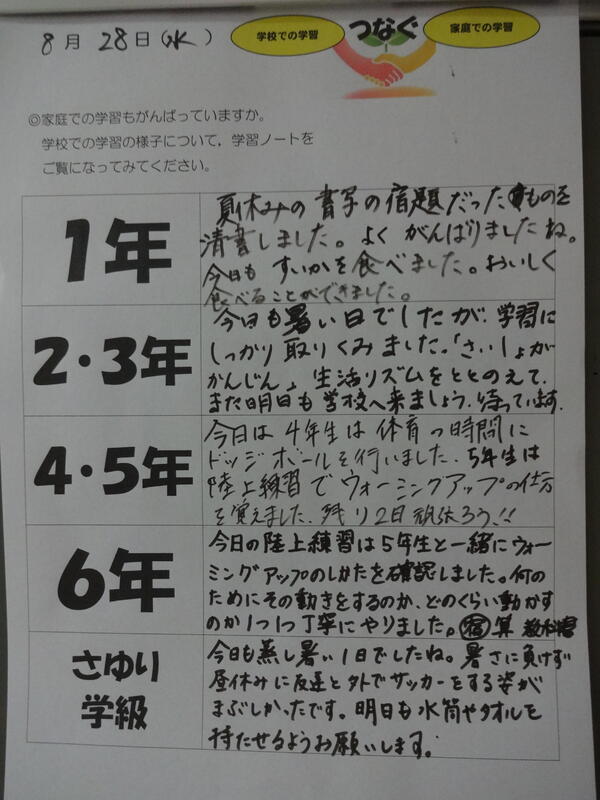 8月28日(水)
学校での学習
つなぐ
家庭での学習
◎家庭での学習もがんばっていますか。
学校での学習の様子について,学習ノートを
ご覧になってみてください。
1年
夏休みの書写の宿題だったものを
清書しました。よくがんばりましたね。
今日もすいかを食べました。おいしく
食べることができました。
2・3年
今日も暑い日でしたが、学習に
しっかり取りくみました。「さいしょが
かんじん」生活リズムをととのえて、
また明日も学校へ来ましょう。待っています。
4・5年
今日は4年生は体育の時間に
ドッジボールを行いました。5年生は
陸上練習でウォーミングアップの仕方
を覚えました。残り2日頑張ろう!!
6年
今日の陸上練習は5年生と一緒にウォー
ミングアップのしかたを確認しました。何の
ためにその動きをするのか、どのくらい動かす
のか1つ1つ丁寧にやりました。宿算 教科書
さゆり
学級
今日も蒸し暑い1日でしたね。暑さに負けず
昼休みに友達と外でサッカーをする姿が
まぶしかったです。明日も水筒やタオルを
持たせるようお願いします。